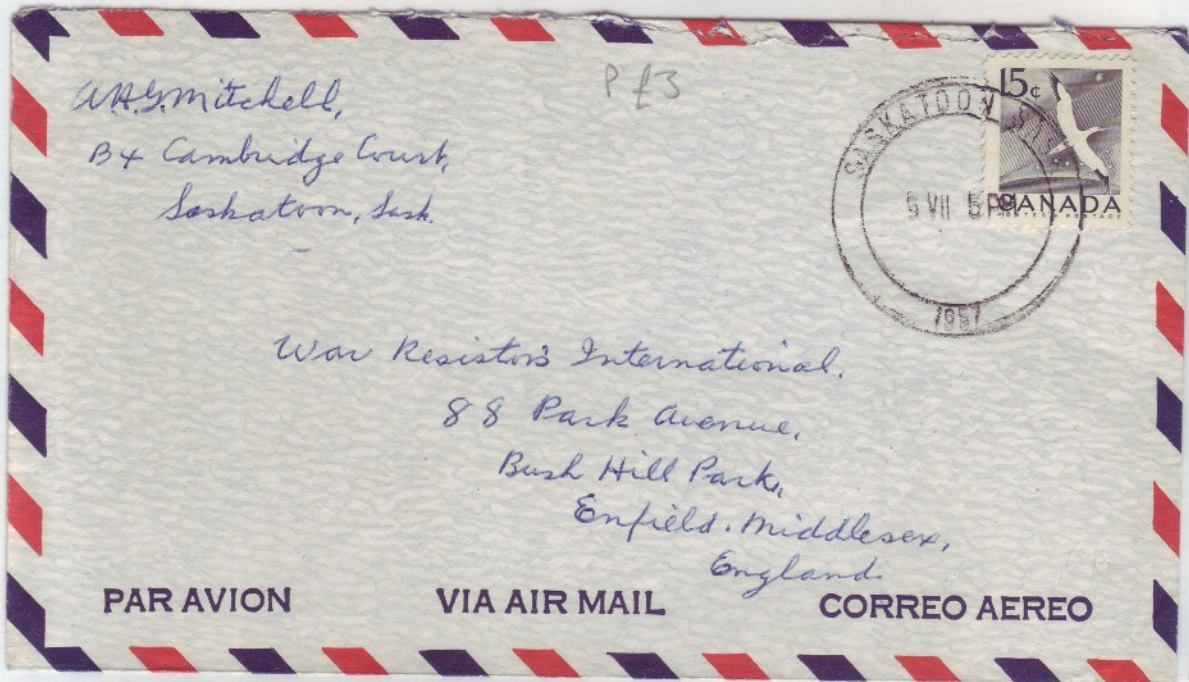 A.H.G. Mitchell,
B4 Cambridge Court,
Saskatoon, Sask.
P £3
SASKATOON
VII
1957
15¢
CANADA
POSTES POSTAGE
War Resistor's International.
88 Park Avenue,
Bush Hill Park,
Enfield. Middlesex,
England.
PAR AVION VIA AIR MAIL CORREO AEREO